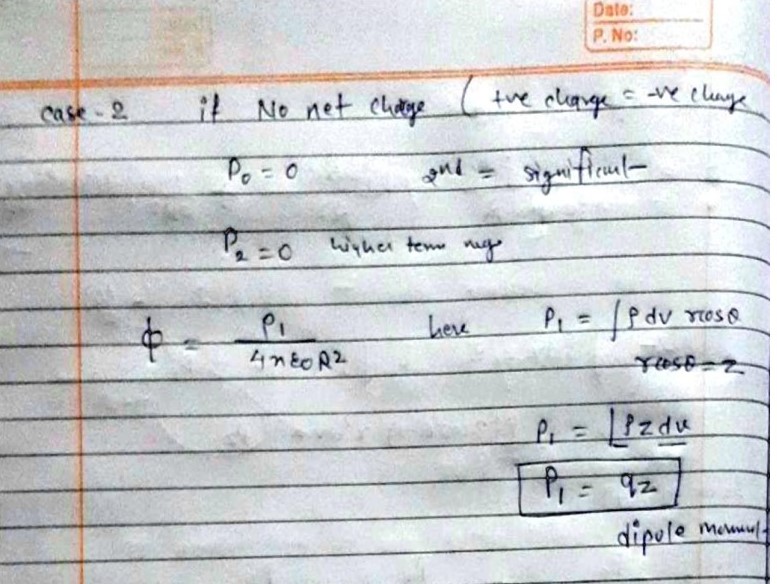 Date:
P. No:
case-2 if No net charge ( +ve charge = -ve charge
P₀ = 0 2nd = significant
P₂ = 0 higher term neg
ϕ = P₁ / 4πε₀R² here P₁ = ∫ρdv rcosθ
rcosθ = z
P₁ = ∫ρz dv
P₁ = qz
dipole moment